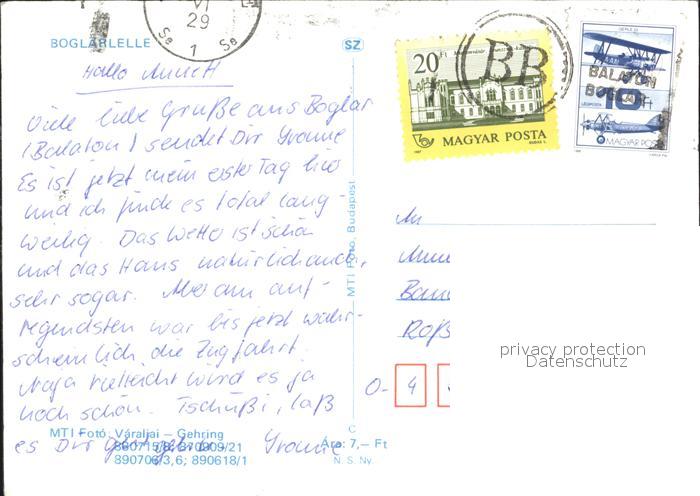 VI
29
1
Se Se
BOGLÁRLELLE
SZ
Hallo
Viele liebe Grüße aus Boglar
(Balaton) sendet Dir Yvonne
Es ist jetzt mein erster Tag hier
und ich finde es total lang-
weilig. Das Wetter ist schön
und das Haus natürlich auch,
sehr sogar. Aber am auf-
regendsten war bis jetzt wahr-
scheinlich die Zugfahrt.
Naja vielleicht wird es ja
noch schön. Tschüßi, laß
es Dir gut gehen Yvonne
20 Ft
BB
MAGYAR POSTA
1987
BALATON
BOGLÁR
10
LÉGIPOSTA
MAGYAR POSTA
MTI Foto, Budapest
An
Roß
O- 4
privacy protection
Datenschutz
MTI Fotó: Váraljai — Gehring
890706/3,6; 890618/1
C
Ára: 7,— Ft
N. S. Ny.